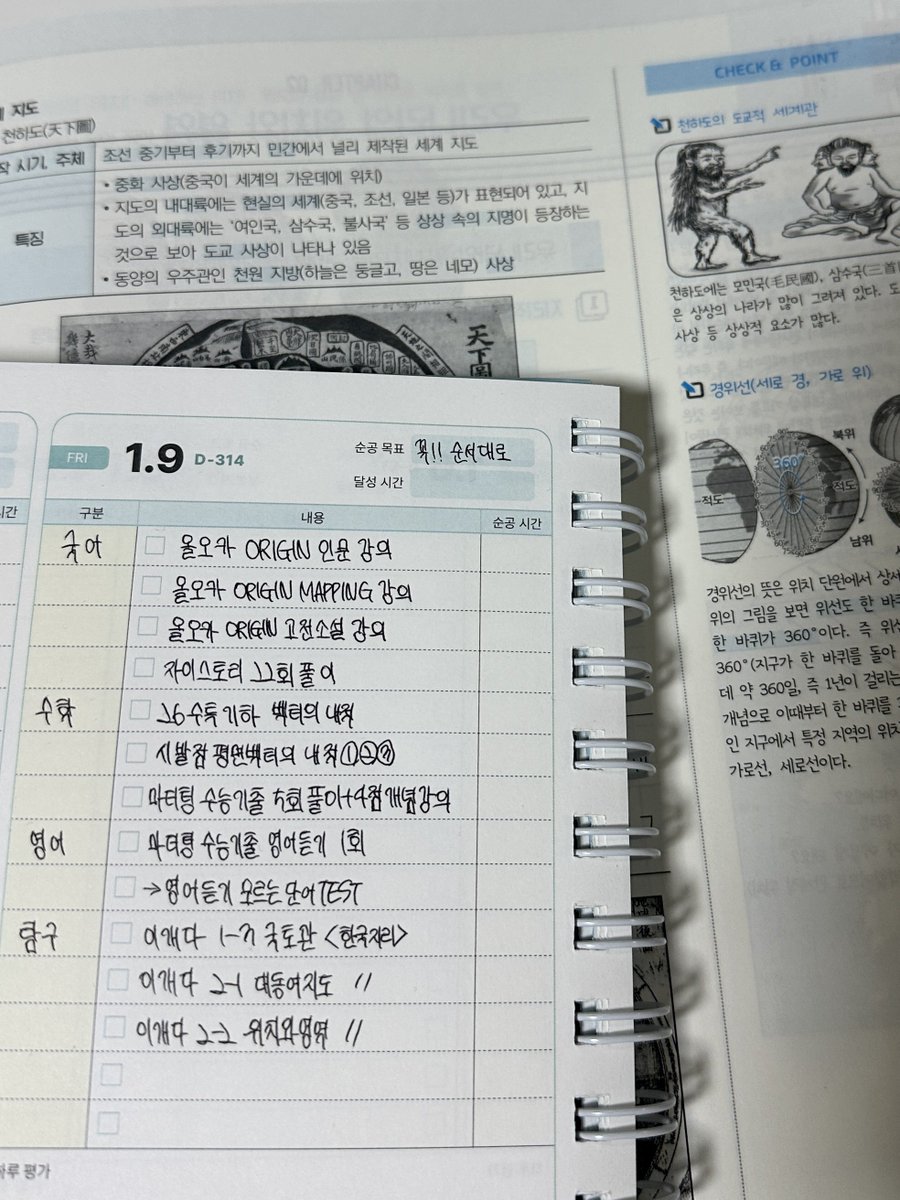 지도
천하도(天下圖)
작 시기, 주체
조선 중기부터 후기까지 민간에서 널리 제작된 세계 지도
특징
• 중화 사상(중국이 세계의 가운데에 위치)
• 지도의 내대륙에는 현실의 세계(중국, 조선, 일본 등)가 표현되어 있고, 지
도의 외대륙에는 '여인국, 삼수국, 불사국' 등 상상 속의 지명이 등장하는
것으로 보아 도교 사상이 나타나 있음
• 동양의 우주관인 천원 지방(하늘은 둥글고, 땅은 네모) 사상
天下圖
CHECK & POINT
천하도의 도교적 세계관
천하도에는 모민국(毛民國), 삼수국(三首
은 상상의 나라가 많이 그려져 있다. 도
사상 등 상상적 요소가 많다.
경위선(세로 경, 가로 위)
360°
북위
적도
적도
남위
경위선의 뜻은 위치 단원에서 상세
위의 그림을 보면 위선도 한 바퀴
한 바퀴가 360°이다. 즉 위선
360°(지구가 한 바퀴를 돌아
데 약 360일, 즉 1년이 걸리는
개념으로 이때부터 한 바퀴를
인 지구에서 특정 지역의 위치
가로선, 세로선이다.
FRI 1.9 D-314
순공 목표 꼭!! 순서대로
달성 시간
시간
구분 내용 순공 시간
국어 올오카 ORIGIN 인문 강의
올오카 ORIGIN MAPPING 강의
올오카 ORIGIN 고전소설 강의
자이스토리 11회 풀이
수학 26수특 기하 벡터의 내적
시발점 평면벡터의 내적①②③
마더텅 수능기출 5회 풀이+4점 개념강의
영어 마더텅 수능기출 영어듣기 1회
→영어듣기 모르는 단어 TEST
탐구 이개다 1-3 국토관 <한국지리>
이개다 2-1 대동여지도 〃
이개다 2-2 위치와영역 〃
하루 평가